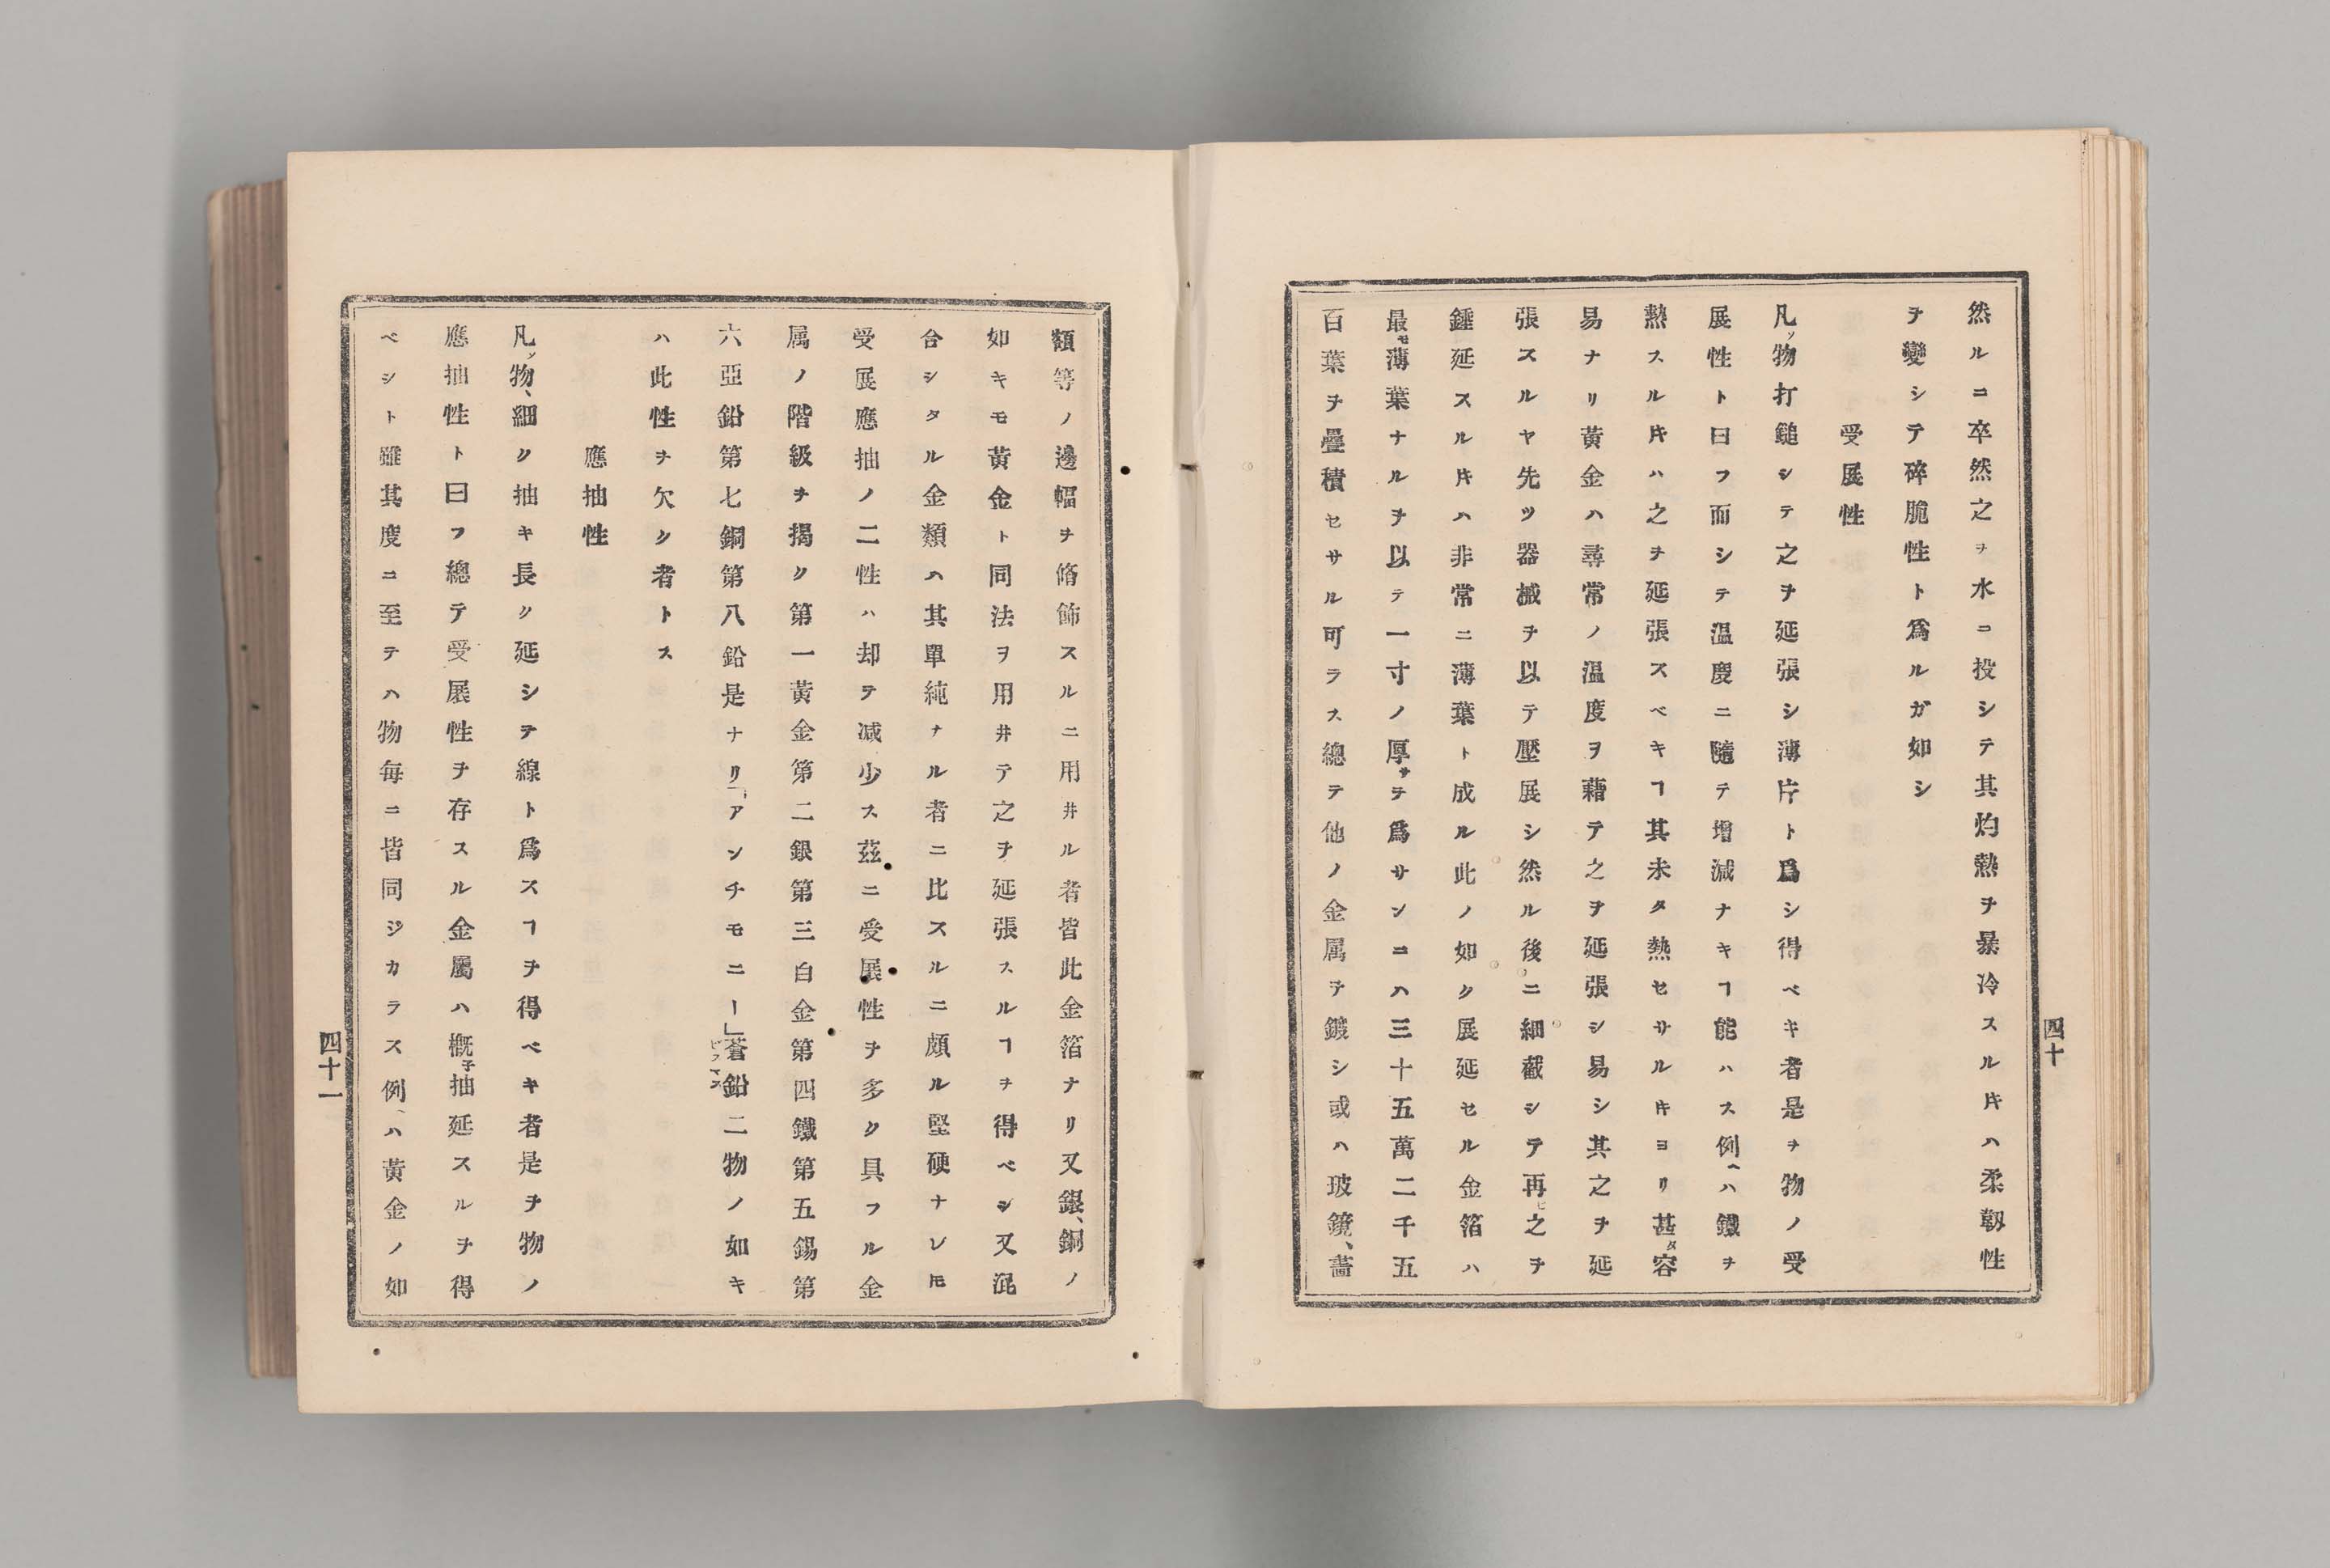 然ルヿ卒然之ヲ水ニ投シテ其灼熱ヲ暴冷スル片ハ柔靱性
ヲ變シテ碎脆性ト爲ルガ如シ
受展性
凡ソ物打鎚シテ之ヲ延張シ薄片ト爲シ得ベキ者是ヲ物ノ受
展性ト曰フ而シテ溫度ニ隨テ增減ナキヿ能ハス例ヘハ鐵ヲ
熱スル片ハ之ヲ延張スベキヿ其未タ熱セサルキヨリ甚タ容
易ナリ黃金ハ尋常ノ溫度ヲ藉テ之ヲ延張シ易シ其之ヲ延
張スルヤ先ツ器械ヲ以テ壓展シ然ル後ニ細截シテ再ヒ之ヲ
錘延スル片ハ非常ニ薄葉ト成ル此ノ如ク展延セル金箔ハ
最モ薄葉ナルヲ以テ一寸ノ厚サヲ爲サンニハ三十五萬二千五
百葉ヲ疊積セサル可ラス總テ他ノ金属ヲ鍍シ或ハ玻鏡、畵
四十
額等ノ邊幅ヲ脩飾スルニ用井ル者皆此金箔ナリ又銀、銅ノ
如キモ黃金ト同法ヲ用井テ之ヲ延張スルヿヲ得ベシ又混
合シタル金類ハ其單純ナル者ニ比スルニ頗ル堅硬ナレ𪜈
受展應抽ノ二性ハ却テ減少ス茲ニ受展性ヲ多ク具フル金
属ノ階級ヲ揭ク第一黃金第二銀第三白金第四鐵第五錫第
六亞鉛第七銅第八鉛是ナリ「アンチモニー」蒼鉛二物ノ如キ
ハ此性ヲ欠ク者トス
應抽性
凡ソ物、細ク抽キ長ク延シテ線ト爲スヿヲ得ベキ者是ヲ物ノ
應抽性ト曰フ總テ受展性ヲ存スル金屬ハ概子抽延スルヲ得
ベシト雖其度ニ至テハ物每ニ皆同ジカラス例ヘハ黃金ノ如
四十一